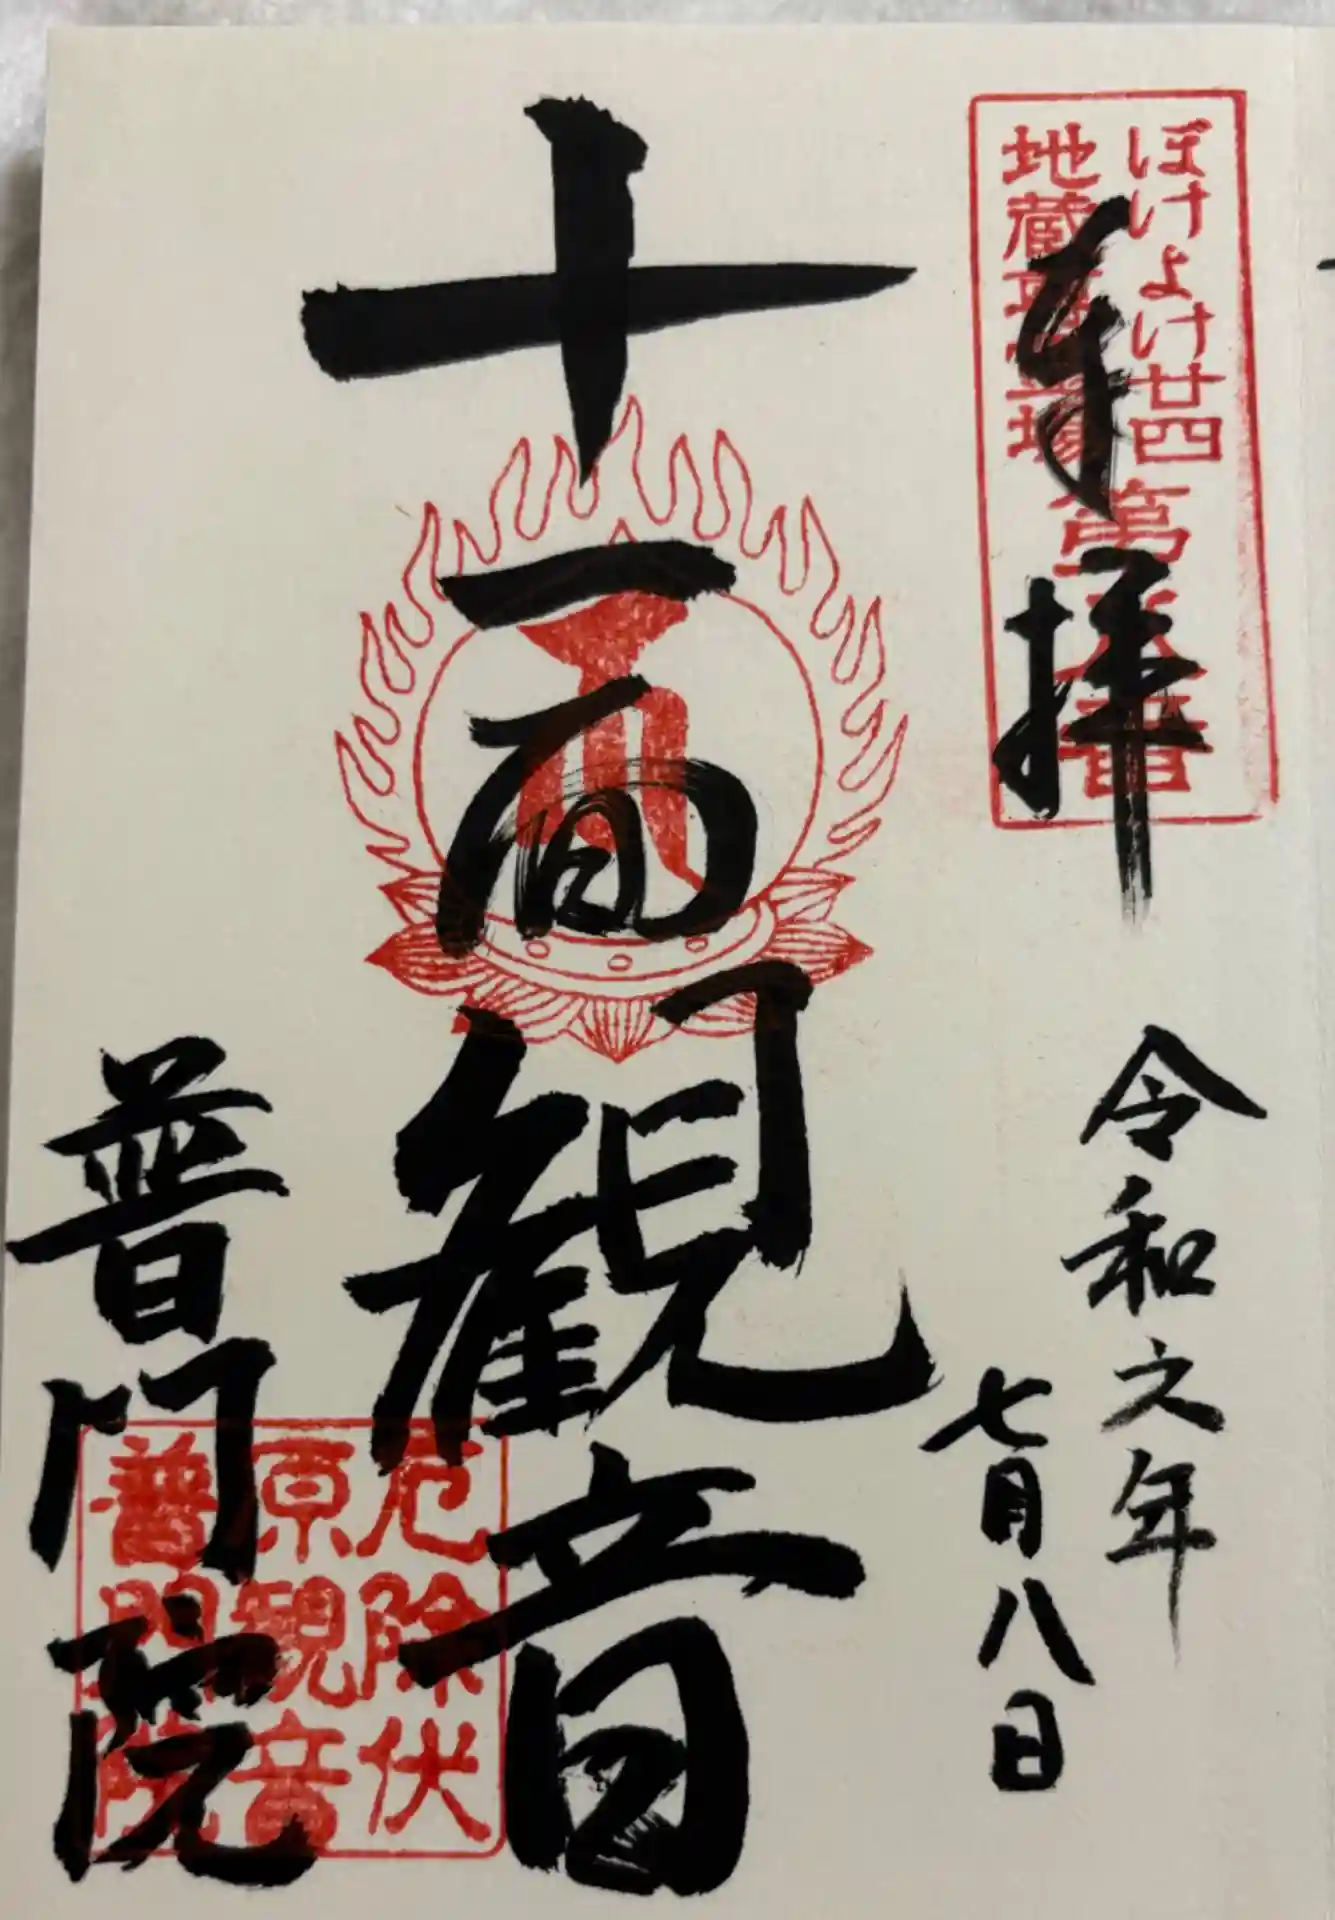 ぼけよけ廿四
地蔵尊霊場
第
番
奉拝
令和元年
七月八日
十一面観音
普門院
厄除伏
原観音
普門院